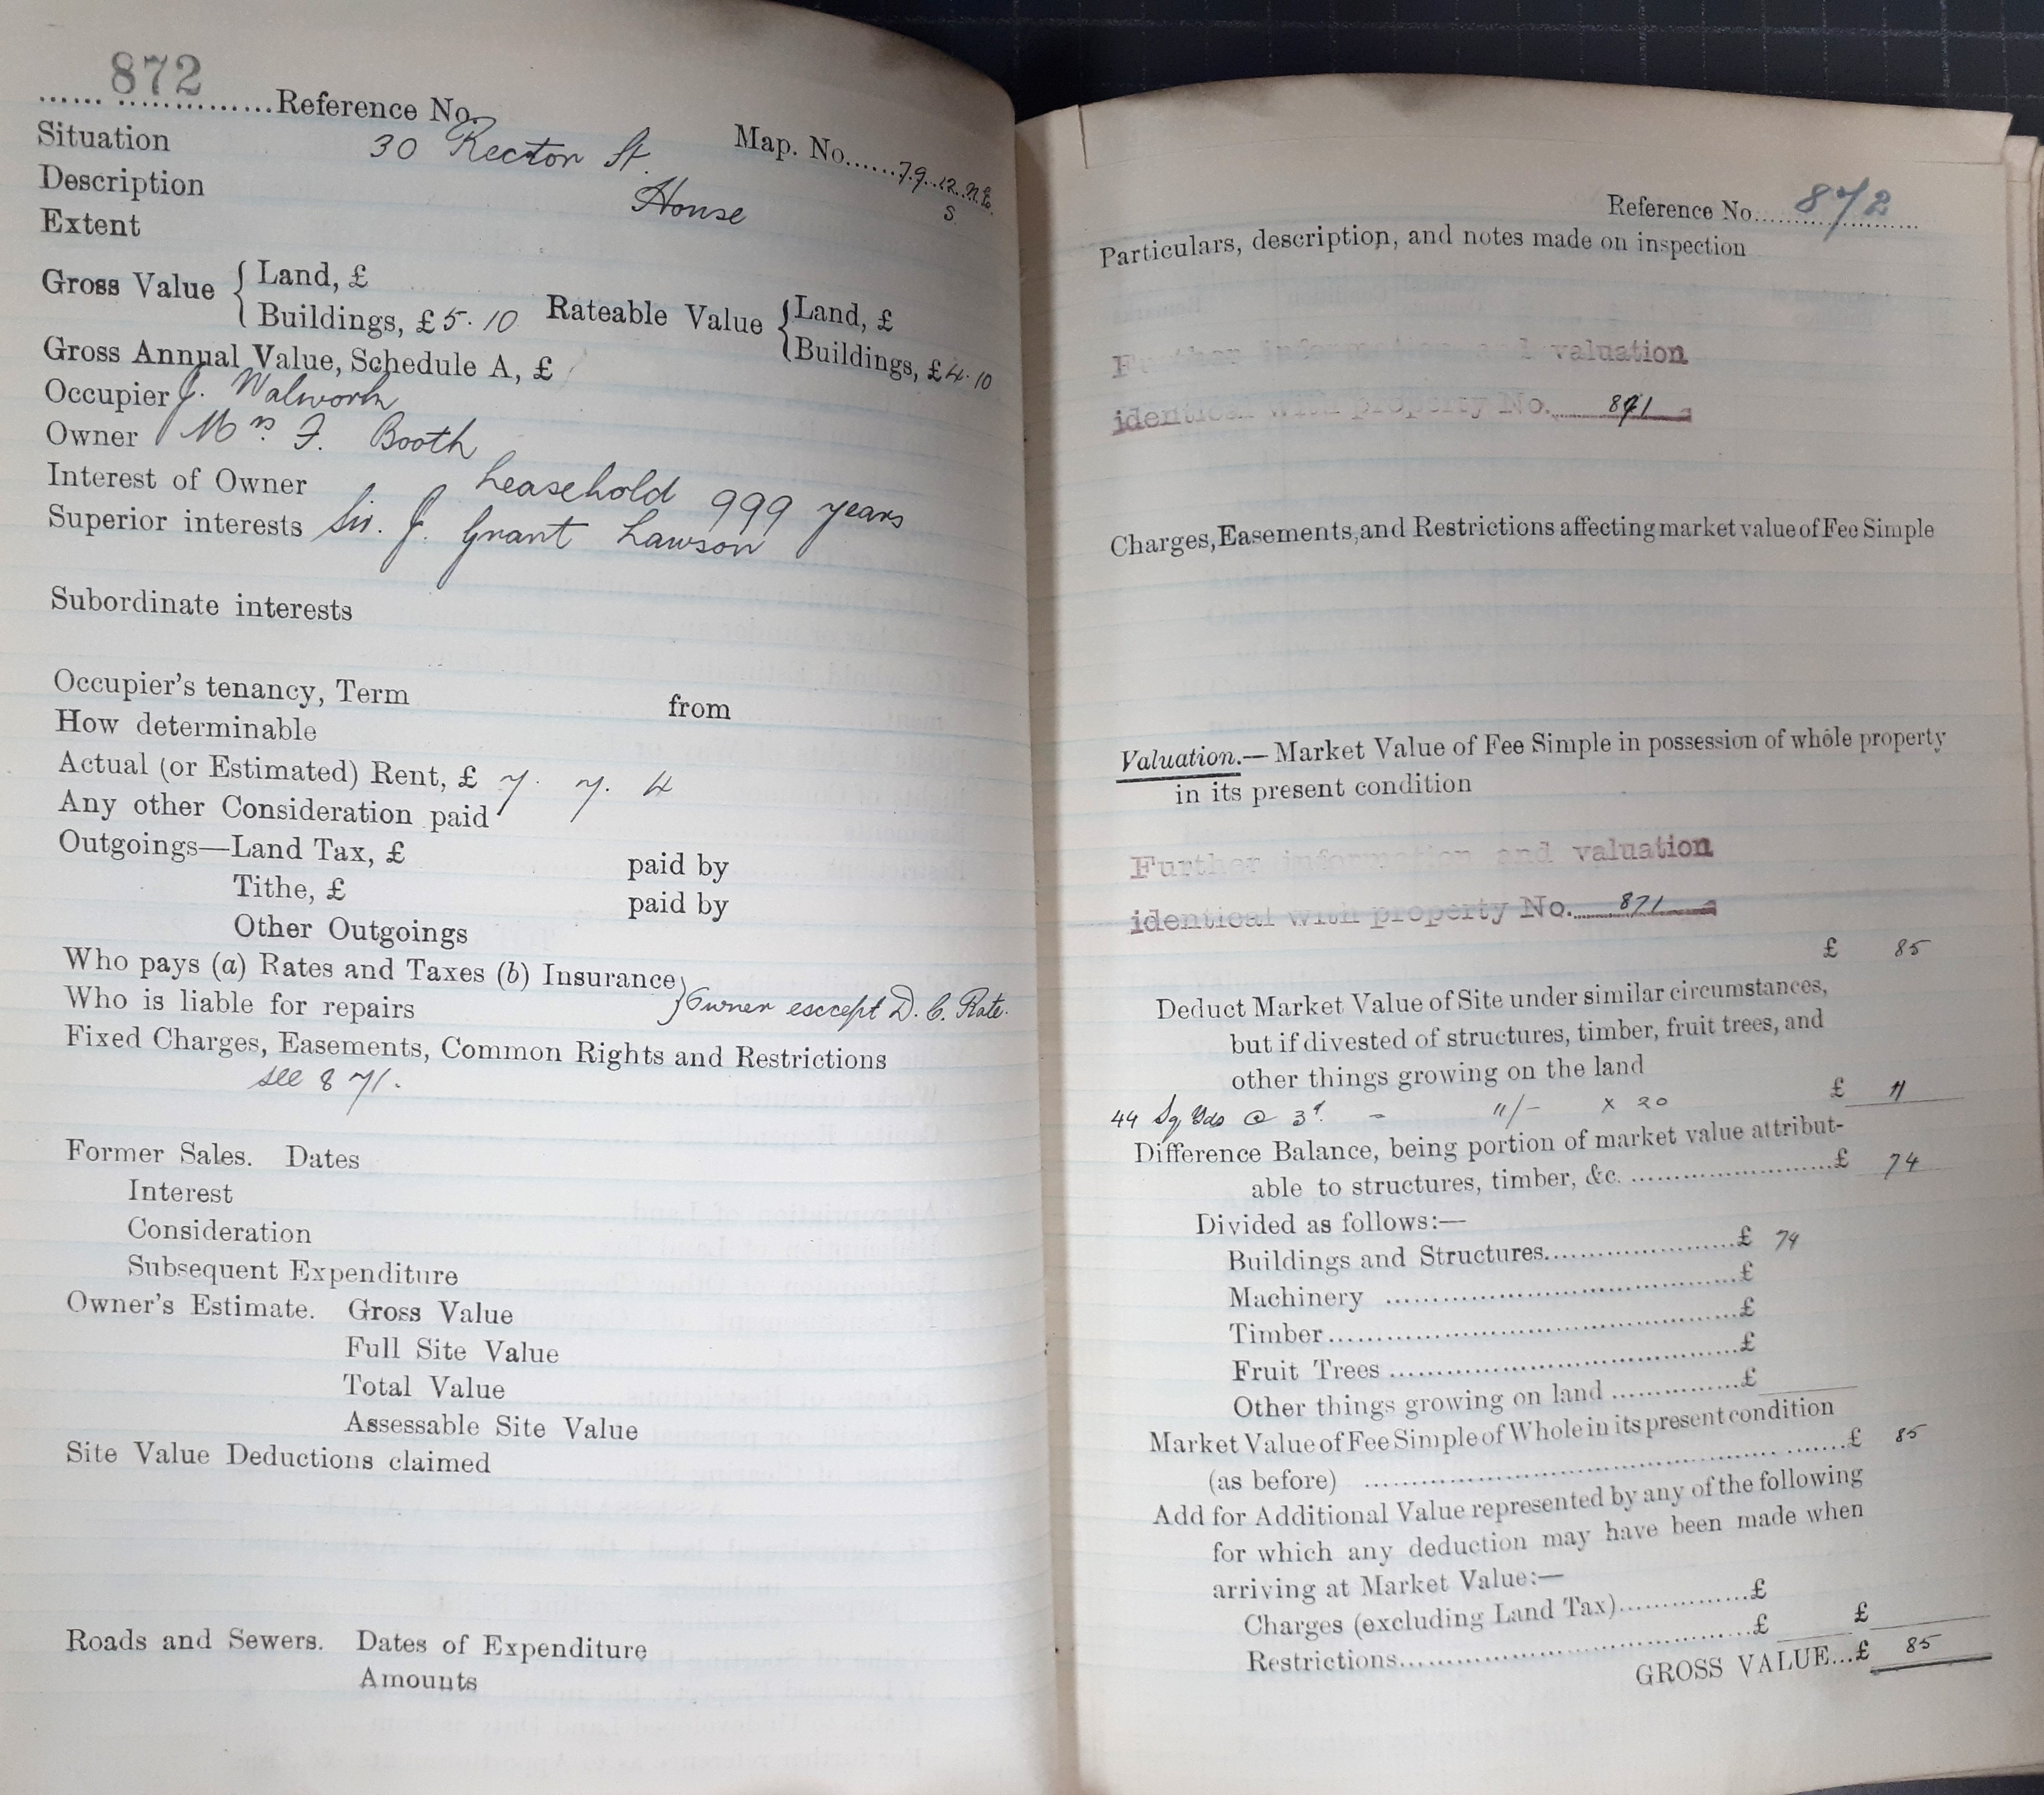 872
...... ...............Reference No.
Map. No......79..12.N.E.
S.
Situation 30 Recton St.
Description House
Extent
Gross Value { Land, £
Buildings, £5.10 Rateable Value { Land, £
Buildings, £4.10
Gross Annual Value, Schedule A, £
Occupier J. Walworth
Owner Mrs. F. Booth
Interest of Owner Leasehold 999 years
Superior interests Sir. J. Grant Lawson
Subordinate interests
Occupier's tenancy, Term from
How determinable
Actual (or Estimated) Rent, £ 7. 7. 4
Any other Consideration paid
Outgoings—Land Tax, £ paid by
Tithe, £ paid by
Other Outgoings
Who pays (a) Rates and Taxes (b) Insurance }
Who is liable for repairs } Owner except D. C. Rate.
Fixed Charges, Easements, Common Rights and Restrictions
see 871.
Former Sales. Dates
Interest
Consideration
Subsequent Expenditure
Owner's Estimate. Gross Value
Full Site Value
Total Value
Assessable Site Value
Site Value Deductions claimed
Roads and Sewers. Dates of Expenditure
Amounts
Reference No....872......
Particulars, description, and notes made on inspection
Further information and valuation
identical with property No. 871
Charges, Easements, and Restrictions affecting market value of Fee Simple
Valuation.— Market Value of Fee Simple in possession of whole property
in its present condition
Further information and valuation
identical with property No. 871
£ 85
Deduct Market Value of Site under similar circumstances,
but if divested of structures, timber, fruit trees, and
other things growing on the land
44 Sq Yds @ 3d. = 11/- x 20 £ 11
Difference Balance, being portion of market value attribut-
able to structures, timber, &c. ........................£ 74
Divided as follows:—
Buildings and Structures.......................£ 74
Machinery ...........................................£
Timber.................................................£
Fruit Trees ..........................................£
Other things growing on land ...............£
Market Value of Fee Simple of Whole in its present condition
(as before) ................................................£ 85
Add for Additional Value represented by any of the following
for which any deduction may have been made when
arriving at Market Value:—
Charges (excluding Land Tax)...............£
Restrictions..........................................£ £
GROSS VALUE...£ 85